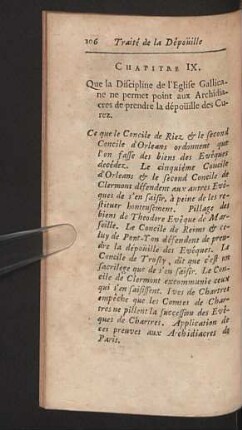 206 Traité de la Dépoüille
CHAPITRE IX.
Que la Discipline de l'Eglise Gallica-
ne ne permet point aux Archidia-
cres de prendre la dépoüille des Cu-
rez.
Ce que le Concile de Riez & le second
Concile d'Orleans ordonnent que
l'on fasse des biens des Evêques
decedez. Le cinquiéme Concile
d'Orleans & le second Concile de
Clermons défendent aux autres Evê-
ques de s'en saisir, à peine de les re-
stituer honteusement. Pillage des
biens de Theodore Evêque de Mar-
seille. Le Concile de Reims & ce-
luy de Pont-Ton défendent de pren-
dre la dépoüille des Evêques. Le
Concile de Trosly, dit que c'est un
sacrilege que de s'en saisir. Le Con-
cile de Clermont excommunie ceux
qui s'en saisissent. Ives de Chartres
empêche que les Comtes de Char-
tres ne pillent la succession des Evê-
ques de Chartres. Application de
ces preuves aux Archidiacres de
Paris.